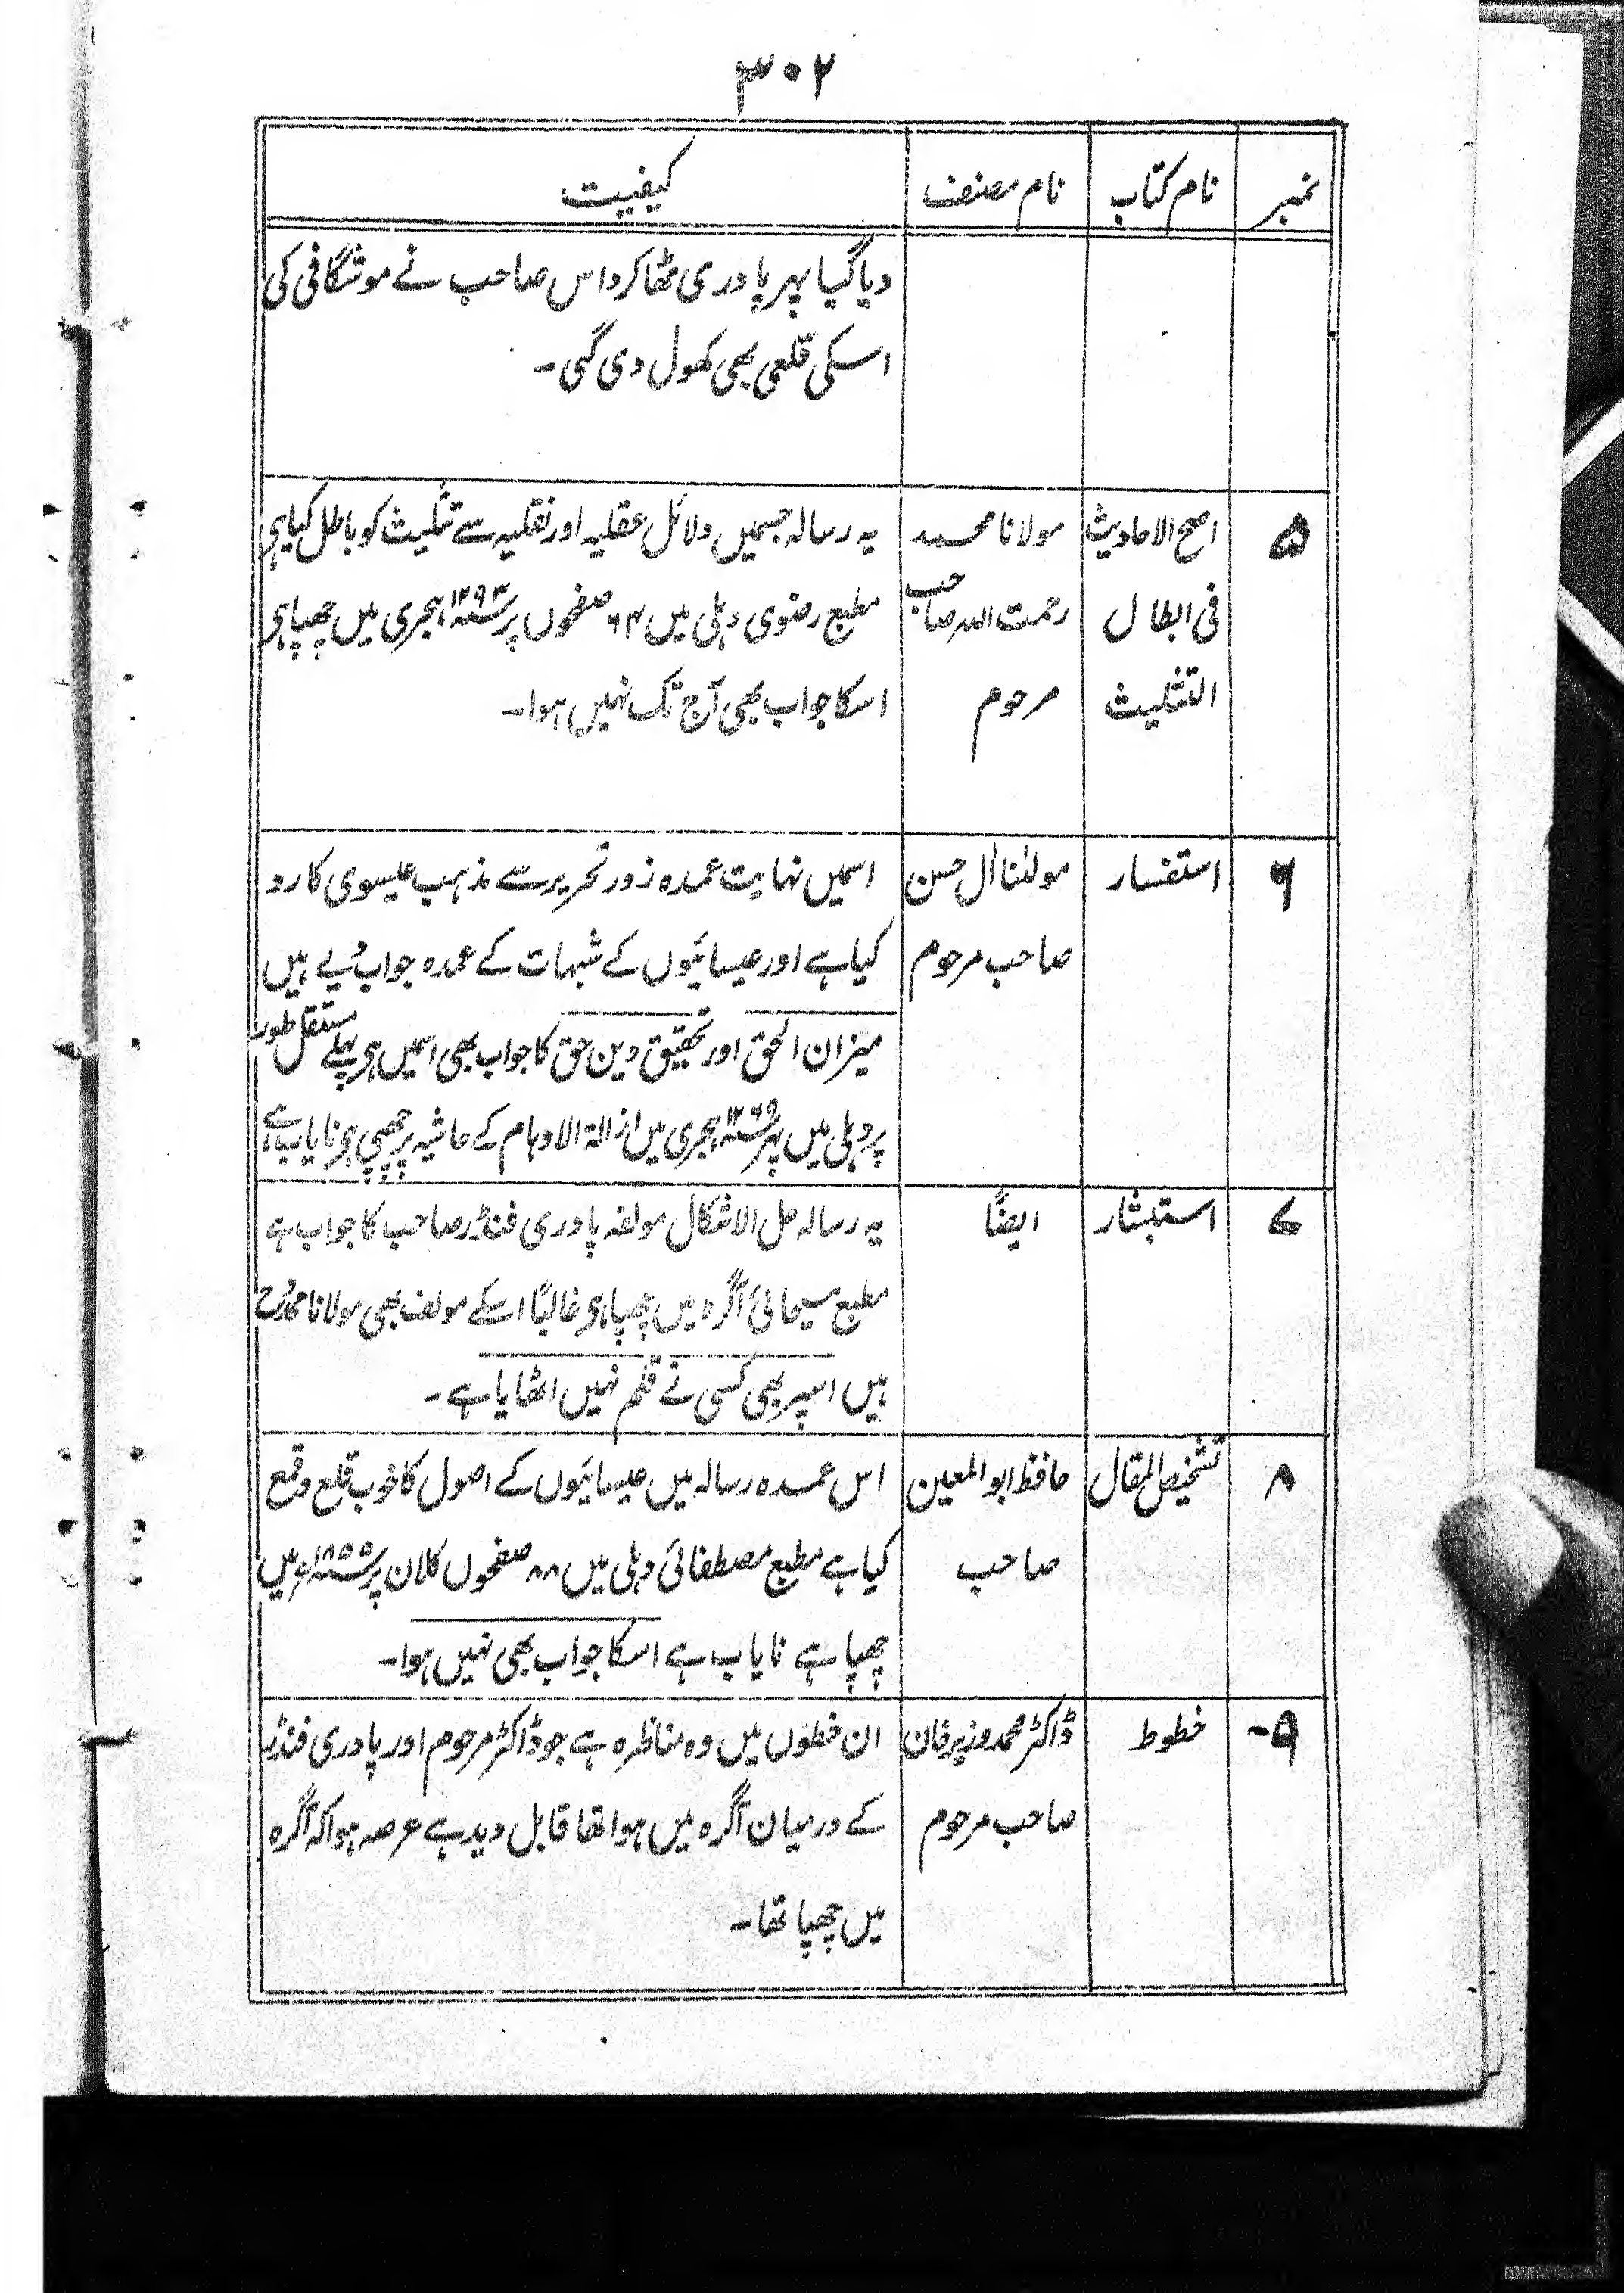 ۳۰۲
نمبر | نام کتاب | نام مصنف | کیفیت
دیا گیا پہر پادری ٹھاکرداس صاحب نے موشگافی کی
اسکی قلعی بھی کھول دی گئی۔
۵ | اصح الاحادیث | مولانا محمد | یہ رسالہ جسمیں دلائل عقلیہ اور نقلیہ سے تثلیث کو باطل کیا ہی
فی ابطال | رحمت اللہ صاحب | مطبع رضوی دہلی میں ۶۴ صفحوں پر ۱۲۹۳ ہجری میں چھپا ہی
التثلیث | مرحوم | اسکا جواب بھی آج تک نہیں ہوا۔
۶ | استفسار | مولٰنا آل حسن | اسمیں نہایت عمدہ زور تحریر سے مذہب عیسوی کا رد
صاحب مرحوم | کیا ہے اور عیسائیوں کے شبہات کے عمدہ جواب دیے ہیں
میزان الحق اور تحقیق دین حق کا جواب بھی اسمیں ہی پہلے مستقل طور
پر دہلی میں پہر ۱۲۶۹ ہجری میں ازالۃ الاوہام کے حاشیہ پر چھپی ہی نایاب ہے
۷ | استبشار | ایضًا | یہ رسالہ حل الاشکال مولفہ پادری فنڈر صاحب کا جواب ہے
مطبع مسیحائی آگرہ میں چھپا ہی غالبًا اسکے مولف بھی مولانا ممدوح
ہیں اسپر بھی کسی نے قلم نہیں اٹھایا ہے۔
۸ | تشخیص المقال | حافظ ابو المعین | اس عمدہ رسالہ میں عیسائیوں کے اصول کا خوب قلع وقمع
صاحب | کیا ہے مطبع مصطفائی دہلی میں ۸۸ صفحوں کلان پر ۱۸۵۵ء میں
چھپا ہے نایاب ہے اسکا جواب بھی نہیں ہوا۔
۹- | خطوط | ڈاکٹر محمد وزیر خان | ان خطوں میں وہ مناظرہ ہے جو ڈاکٹر مرحوم اور پادری فنڈر
صاحب مرحوم | کے درمیان آگرہ میں ہوا تھا قابل دید ہے عرصہ ہوا کہ آگرہ
میں چھپا تھا۔